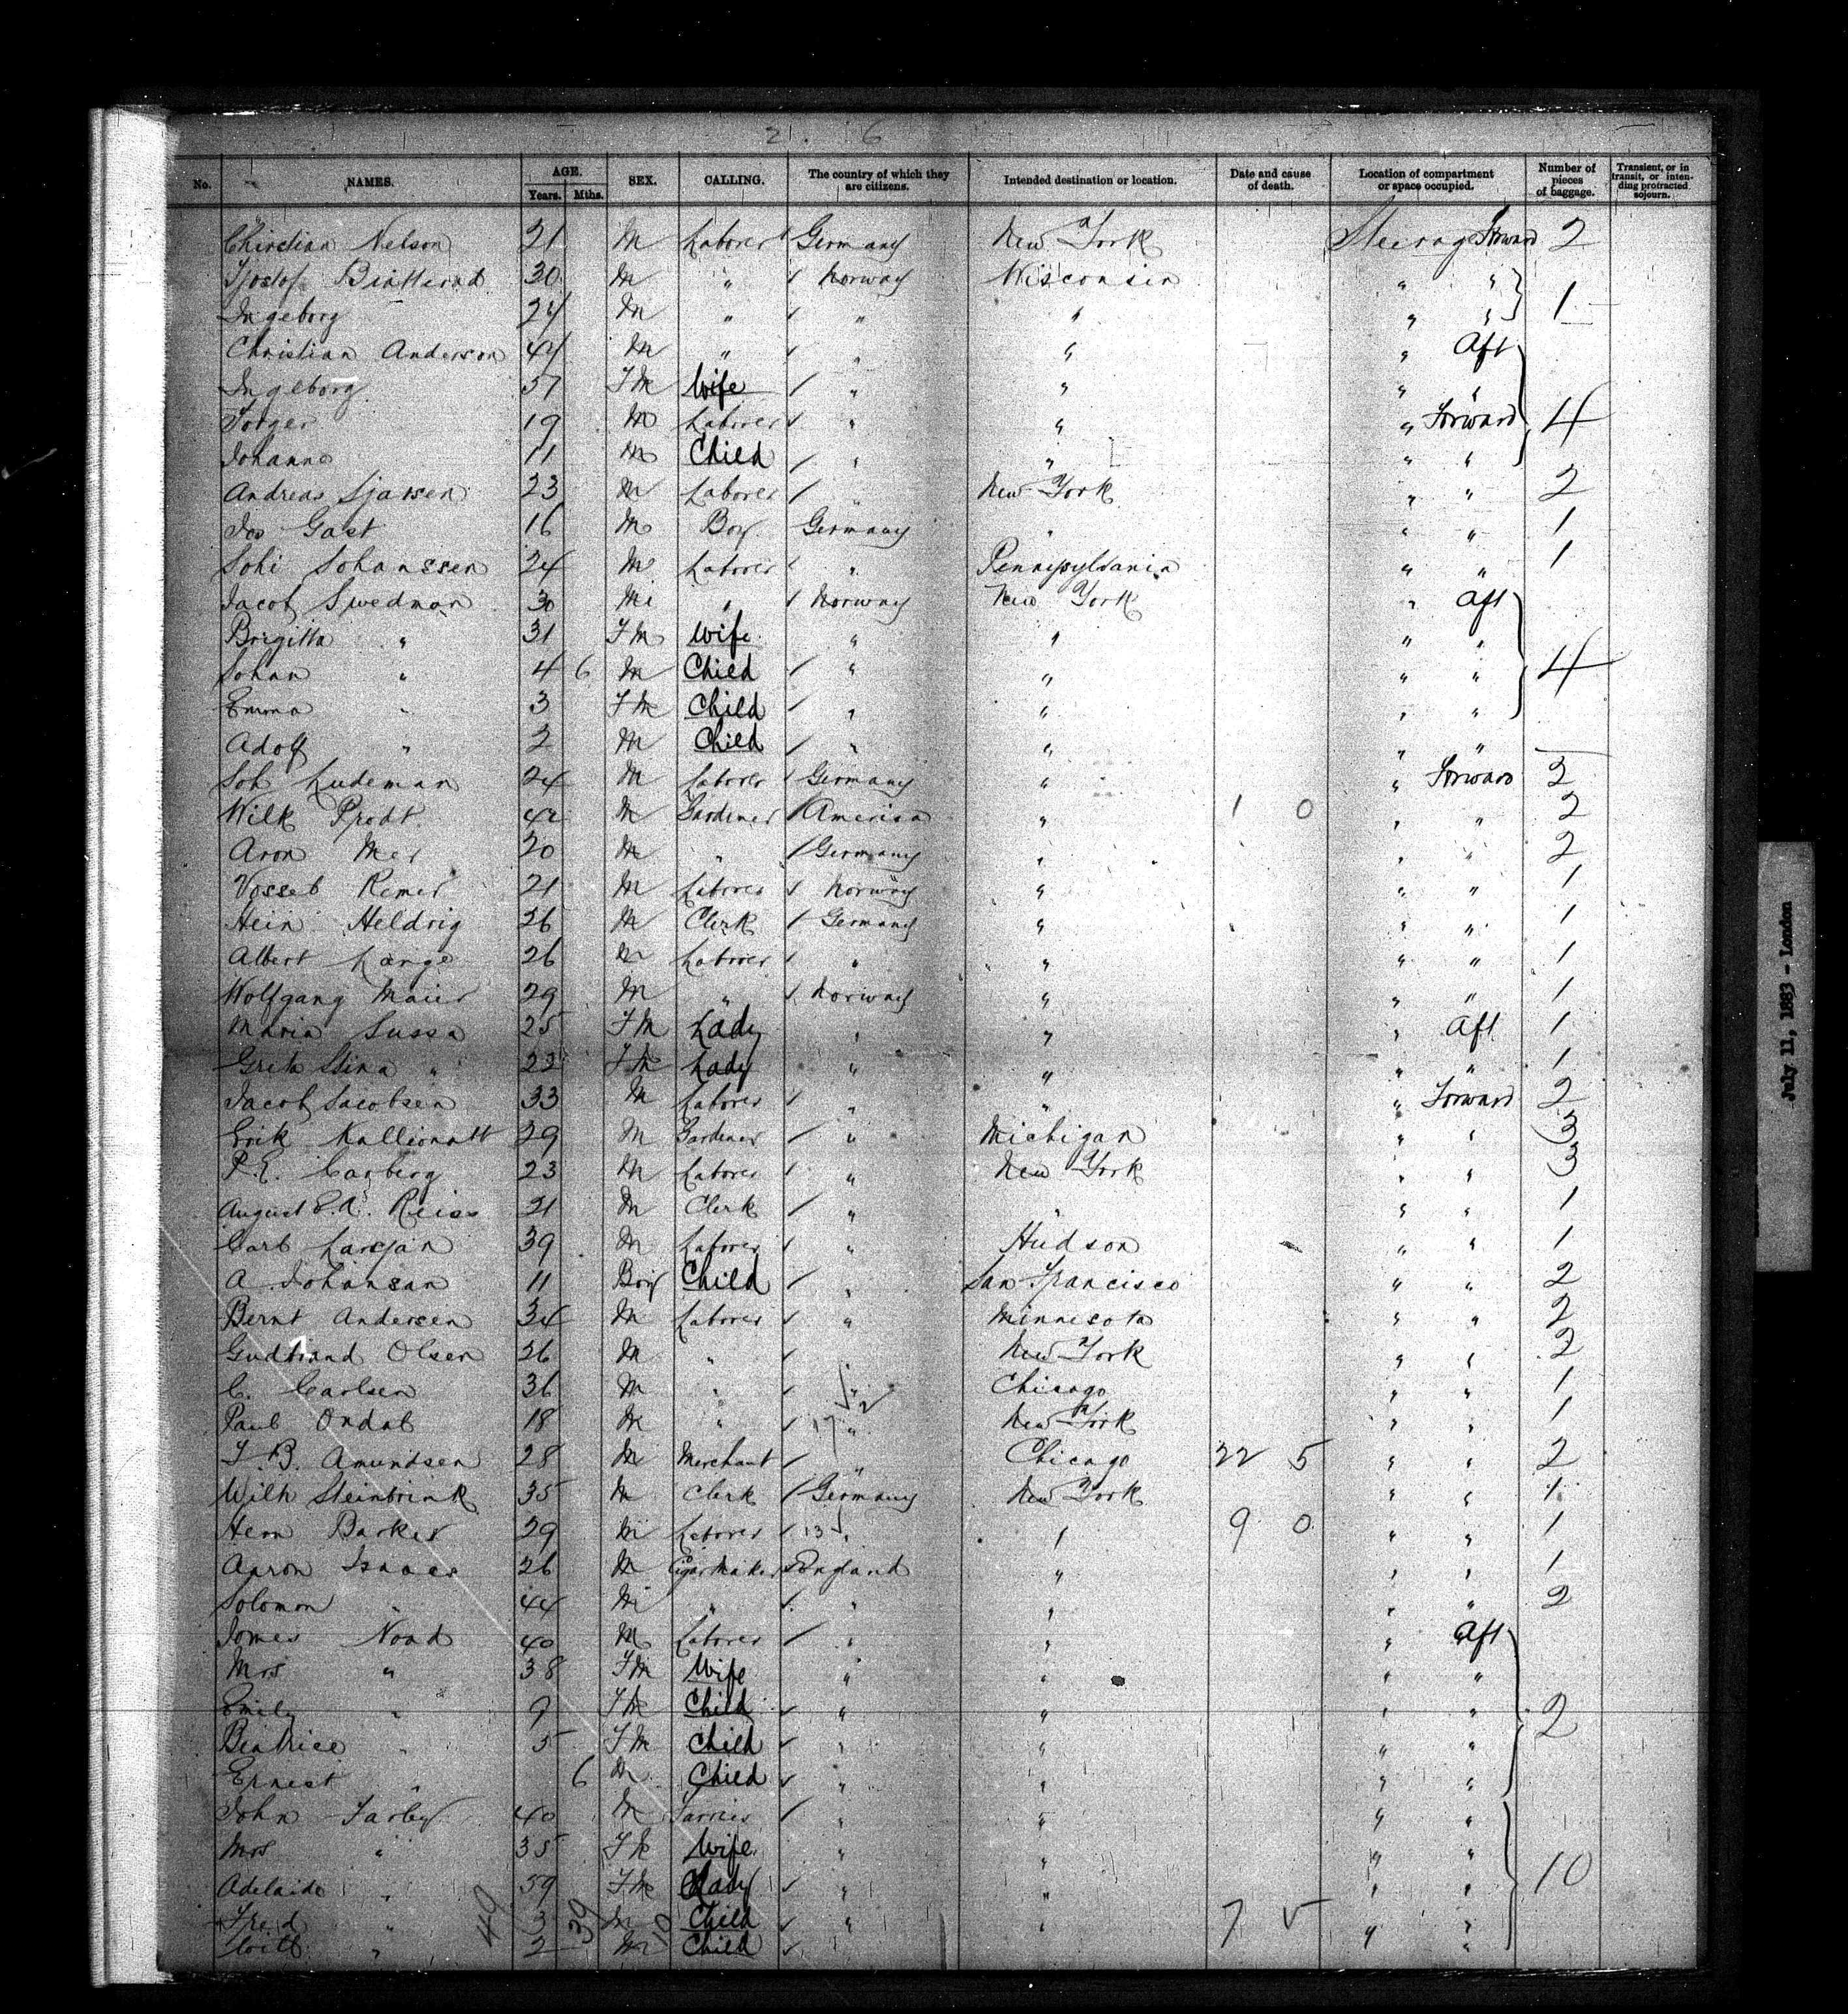 2. 6
No. NAMES. AGE. Years. Mths. SEX. CALLING. The country of which they are citizens. Intended destination or location. Date and cause of death. Location of compartment or space occupied. Number of pieces of baggage. Transient, or in transit, or intending protracted sojourn.
Christian Nelson 21 M Laborer Germany New York Steerage Forward 2
30 M " Norway Wisconsin " "
Ingeborg 24 M " " " " " 1
Christian Anderson 44 M " " " " Aft
Ingeborg 57 FM Wife " " " "
Torger 19 M Laborer " " " Forward 4
Johanne 11 M Child " " " "
Andreas 23 M Laborer " New York " " 2
Jos Gast 16 M Boy Germany " " " 1
Johanssen 24 M Laborer " Pennsylvania " " 1
Jacob Swedman 30 M " Norway New York " Aft
Brigitta " 31 FM Wife " " " "
Johan " 4 6 M Child " " " " 4
Emma " 3 FM Child " " " "
Adolf " 2 M Child " " " "
Joh Ludeman 24 M Laborer Germany " " Forward 2
Wilk 42 M Gardener America " 1 0 " " 2
Aron Mer 20 M " Germany " " " 2
Remer 21 M Laborer Norway " " " 1
Hein Heldrig 26 M Clerk Germany " " " 1
Albert Lange 26 M Laborer " " " " 1
Wolfgang Maier 29 M " Norway " " " 1
Maria Sussa 25 FM Lady " " " Aft 1
Greta Stina " 22 FM Lady " " " " 1
Jacob Jacobsen 33 M Laborer " " " Forward 2
Erik 29 M Gardener " Michigan " " 3
P.E. Carberg 23 M Laborer " New York " " 3
August E.A. Reiss 21 M Clerk " " " " 1
Carl 39 M Laborer " Hudson " " 1
A Johansan 11 Boy Child " San Francisco " " 2
Bernt Andersen 34 M Laborer " Minnesota " " 2
Gudbrand Olsen 26 M " " New York " " 2
C. Carlsen 36 M " " Chicago " " 1
Paul Ondal 18 M " 17 " New York " " 1
T.B. Amundsen 28 M Merchant " Chicago 22 5 " " 2
Wilh Steinbrink 35 M Clerk Germany New York " " 1
Herm Barker 29 M Laborer 13 " " 9 0 " " 1
Aaron Isaacs 26 M Cigar Maker England " " " 1
Solomon " 44 M " " " " " 2
James Noad 40 M Laborer " " " Aft
Mrs " 38 FM Wife " " " "
Emily " 9 FM Child " " " " 2
Beatrice " 5 FM Child " " " "
Ernest " 6 M Child " " " "
John Farley 40 M " " " "
Mrs " 35 FM Wife " " " "
Adelaide " 59 FM Lady " " " " 10
Fred " 3 M Child " " 7 5 " "
Will " 2 M Child " "
49 39 10
July 11, 1883 - London